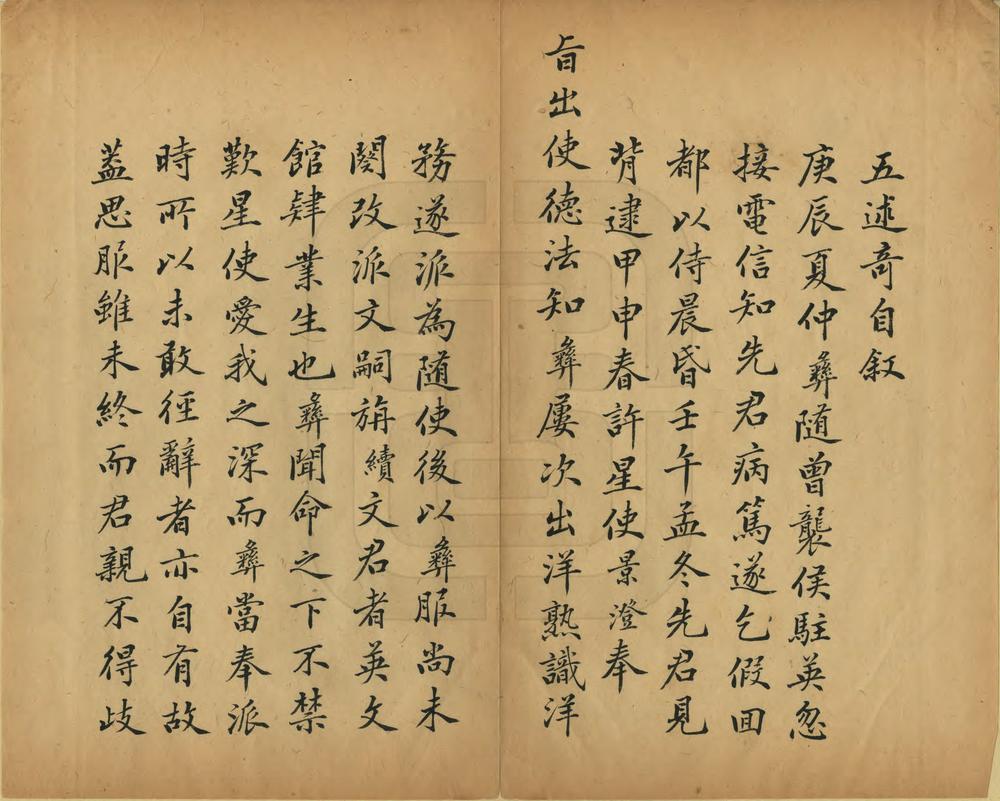 五述奇自敘
庚辰夏仲彝隨曾襲侯駐英忽
接電信知先君病篤遂乞假回
都以侍晨昏壬午孟冬先君見
背逮甲申春許星使景澄奉
旨出使德法知彝屢次出洋熟識洋
務遂派為随使後以彝服尚未
闋改派文嗣旃續文君者英文
館肄業生也彝聞命之下不禁
歎星使愛我之深而彝當奉派
時所以未敢徑辭者亦自有故
葢思服雖未終而君親不得歧